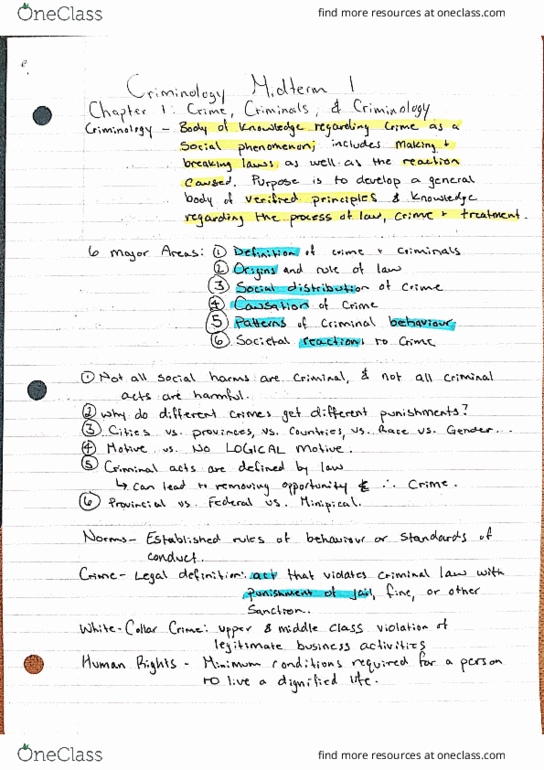 OneClass
find more resources at oneclass.com
Criminology Midterm 1
Chapter 1: Crime, Criminals, & Criminology
Criminology - Body of knowledge regarding Crime as a
Social phenomenon; includes Making +
breaking laws as well as the reaction
caused. Purpose is to develop a general
body of verified principles & knowledge
regarding the process of law, crime + treatment.
6 major Areas: ① Definition of crime + criminals
② Origins and rule of law
③ Social distribution of Crime
④ Causation of Crime
⑤ Patterns of Criminal behaviour
⑥ Societal reactions to Crime
① Not all social harms are Criminal, & not all criminal
acts are harmful.
② Why do different crimes get different punishments?
③ Cities vs. provinces, vs. Countries, vs. Race vs. Gender...
④ Motive vs. No LOGICAL Motive.
⑤ Criminal acts are defined by law
↳ Can lead to removing opportunity & ∴ Crime.
⑥ Provincial vs. Federal vs. Minipical.
Norms - Established rules of behaviour or standards of
conduct.
Crime - Legal definition: act that violates criminal law with
punishment of jail, fine, or other
Sanction.
White-Collar Crime: upper & middle class violation of
legitimate business activities
Human Rights - Minimum conditions required for a person
to live a dignified life.
OneClass
find more resources at oneclass.com